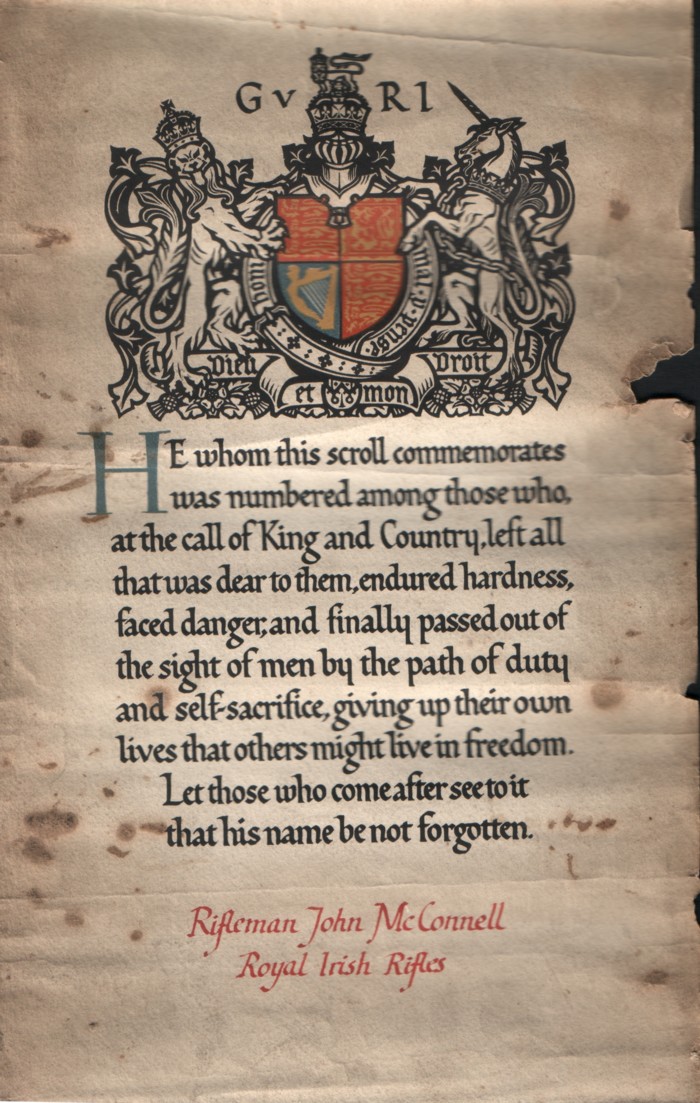 G V R I
Honi mal y pense
Dieu Droit
et mon
HE whom this scroll commemorates
was numbered among those who,
at the call of King and Country, left all
that was dear to them, endured hardness,
faced danger, and finally passed out of
the sight of men by the path of duty
and self-sacrifice, giving up their own
lives that others might live in freedom.
Let those who come after see to it
that his name be not forgotten.
Rifleman John McConnell
Royal Irish Rifles